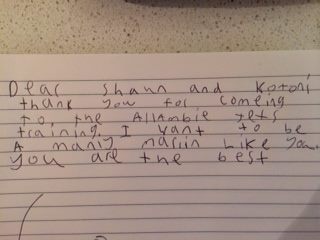 Dear Shaun and Kotoni
thank you for comeing
to, the Allambie Jets
training. I want to be
A manly marlin Like you.
you are the best